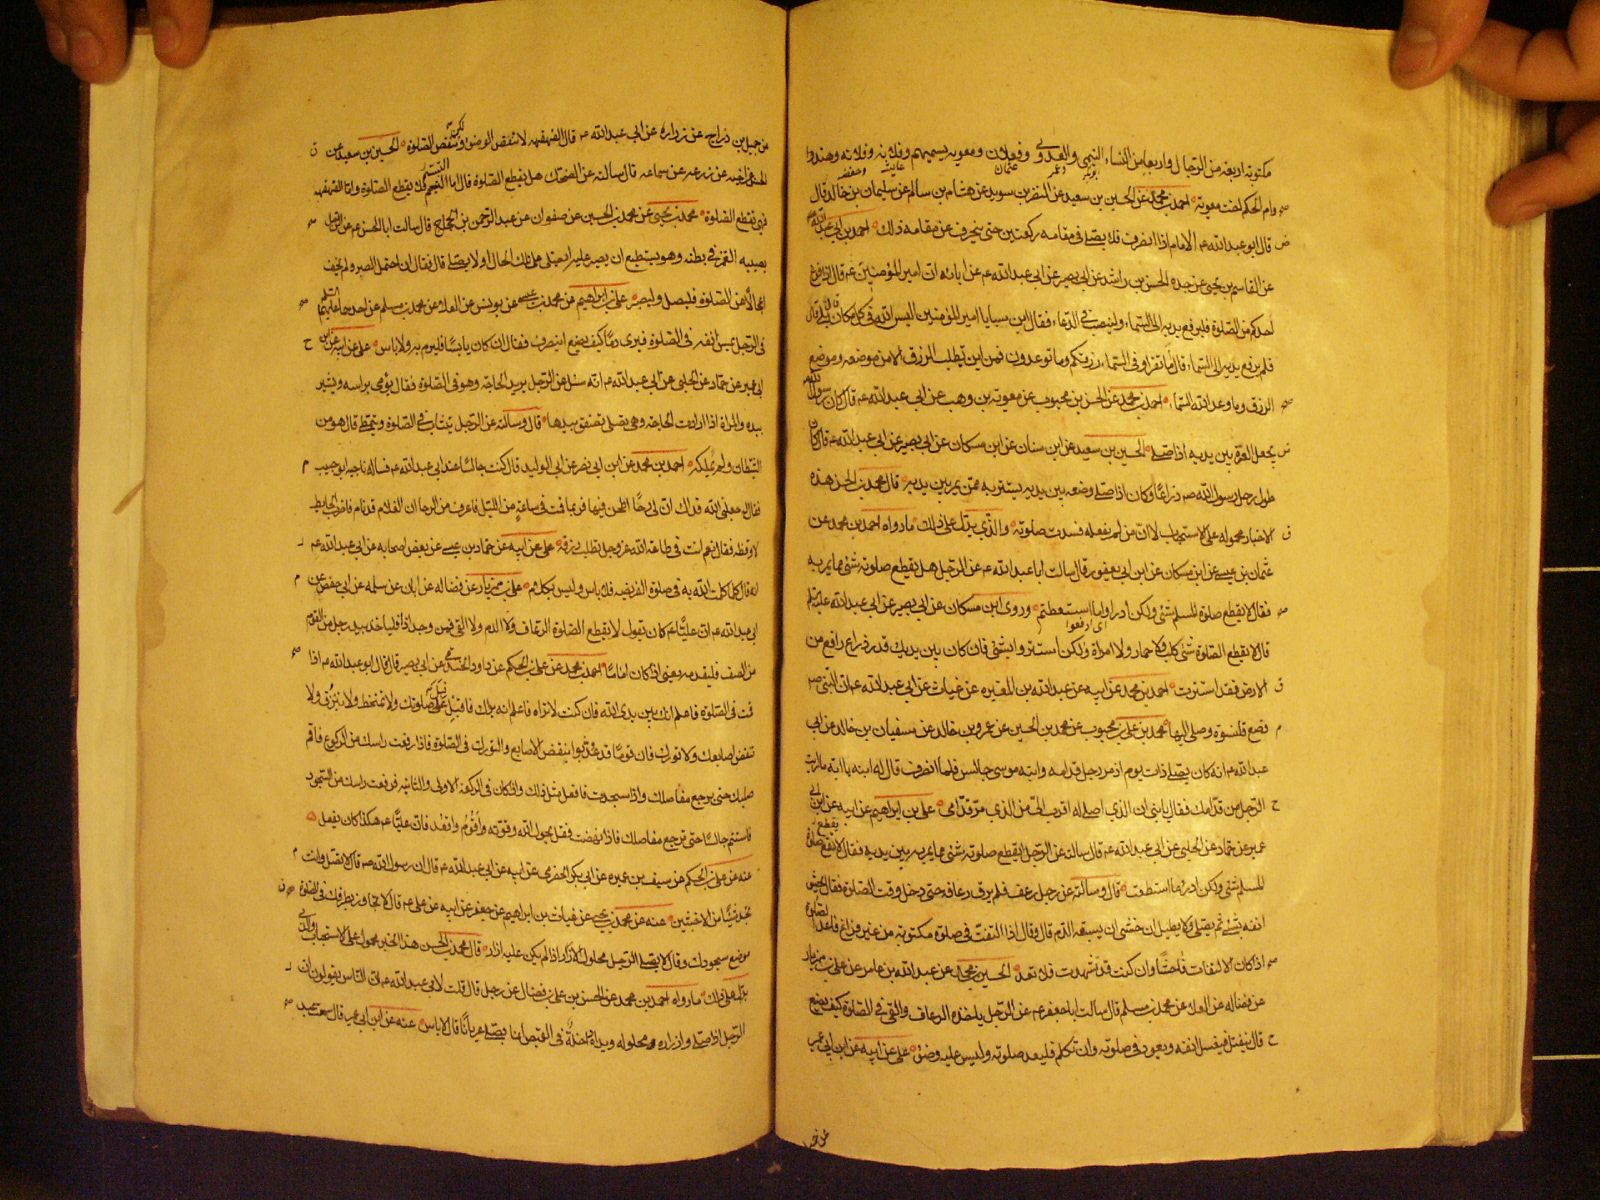 مكتوبة اربعة من الرجال واربعا من النساء التيمي والعدوي وفعلان ومعوية يسميهم وفلانة وفلانة وهندا
وام الحكم اخت معوية احمد بن محمد عن الحسين بن سعيد عن النضر بن سويد عن هشام بن سالم عن سليمان بن خالد قال
قال ابو عبد الله عم الامام اذا انصرف فلا يصلي في مقامه ركعتين حتى ينحرف عن مقامه ذلك احمد بن ابي عبد الله
عن القاسم بن يحيى عن جده الحسن بن راشد عن ابي بصير عن ابي عبد الله عم عن ابائه ان امير المؤمنين عم قال اذا فرغ
احدكم من الصلوة فليرفع يديه الى السماء ولينصب في الدعاء فقال ابن سبا يا امير المؤمنين اليس الله في كل مكان قال
فلم يرفع يديه الى السماء قال اما تقرأ وفي السماء رزقكم وما توعدون فمن اين يطلب الرزق الا من موضعه وموضع
الرزق وما وعد الله السماء احمد بن محمد عن الحسن بن محبوب عن معوية بن وهب عن ابي عبد الله عم قال كان رسول الله
يجعل العنزة بين يديه اذا صلى الحسين بن سعيد عن ابن سنان عن ابن مسكان عن ابي بصير عن ابي عبد الله عم قال كان
طول رحل رسول الله صم ذراعا وكان اذا صلى وضعه بين يديه يستتر به ممن يمر بين يديه قال محمد بن الحسن هذه
الاخبار محمولة على الاستحباب لا ان من لم يفعله فسدت صلوته والذي يدل على ذلك ما رواه احمد بن محمد عن
عثمان بن عيسى عن ابن مسكان عن ابن ابي يعفور قال سالت ابا عبد الله عم عن الرجل هل يقطع صلوته شئ مما يمر به
فقال لا يقطع صلوة المسلم شئ ولكن ادراوا ما استطعتم وروى ابن مسكان عن ابي بصير عن ابي عبد الله عليه السلم
قال لا يقطع الصلوة شئ كلب ولا حمار ولا امراة ولكن استتروا بشئ فان كان بين يديك قدر ذراع رافع من
الارض فقد استترت احمد بن محمد عن ابيه عن عبد الله بن المغيرة عن غياث عن ابي عبد الله عم ان النبي صم
وضع قلنسوة وصلى اليها محمد بن علي بن محبوب عن محمد بن الحسين عن عمرو بن خالد عن سفيان بن خالد عن ابي
عبد الله عم انه كان يصلي ذات يوم اذ مر رجل قدامه وابنه موسى جالس فلما انصرف قال له ابنه يا ابه ما رايت
الرجل مر قدامك فقال يا بني ان الذي اصلي له اقرب الي من الذي مر قدامي علي بن ابراهيم عن ابيه عن ابن ابي
عمير عن حماد عن الحلبي عن ابي عبد الله عم قال سالته عن الرجل ايقطع صلوته شئ مما يمر بين يديه فقال لا يقطع صلوة
المسلم شئ ولكن ادرء ما استطعت قال وسالته عن رجل رعف فلم يرق رعافه حتى دخل وقت الصلوة فقال يحشو
انفه بشئ ثم يصلي ولا يطيل ان خشي ان يسبقه الدم قال وقال اذا التفت في صلوة مكتوبة من غير فراغ فاعد الصلوة
اذا كان الالتفات فاحشا وان كنت قد تشهدت فلا تعد الحسين بن محمد عن عبد الله بن عامر عن علي بن مهزيار
عن فضالة عن العلاء عن محمد بن مسلم قال سالت ابا جعفر عم عن الرجل ياخذه الرعاف والقئ في الصلوة كيف يصنع
قال ينفتل فيغسل انفه ويعود في صلوته وان تكلم فليعد صلوته وليس عليه وضوء علي عن ابيه عن ابن ابي عمير
عن جميل بن دراج عن زرارة عن ابي عبد الله عم قال القهقهة لا تنقض الوضوء وتنقض الصلوة الحسين بن سعيد عن
اخيه عن زرعة عن سماعة قال سالته عن الضحك هل يقطع الصلوة قال اما التبسم فلا يقطع الصلوة واما القهقهة
فهي تقطع الصلوة محمد بن يحيى عن محمد بن الحسين عن صفوان عن عبد الرحمن بن الحجاج قال سالت ابا الحسن عم عن الرجل
يصيبه الغمز في بطنه وهو يستطيع ان يصبر عليه ايصلي على تلك الحال او لا يصلي قال فقال ان احتمل الصبر ولم يخف
اعجالا عن الصلوة فليصل وليصبر علي بن ابراهيم عن محمد بن عيسى عن يونس عن العلاء عن محمد بن مسلم عن احدهما عليهما السلم
في الرجل يمس انفه في الصلوة فيرى دما كيف يصنع اينصرف فقال ان كان يابسا فليرم به ولا باس علي عن ابيه عن ابن
ابي عمير عن حماد عن الحلبي عن ابي عبد الله عم انه سئل عن الرجل يريد الحاجة وهو في الصلوة فقال يؤمي براسه ويشير
بيده والمراة اذا ارادت الحاجة وهي تصلي تصفق بيدها قال وسالته عن الرجل يتثاب في الصلوة ويتمطى قال هو من
الشيطان ولم يملكه احمد بن محمد عن ابن ابي نصر عن ابي الوليد قال كنت جالسا عند ابي عبد الله عم فساله ناجية ابو حبيب
فقال له جعلني الله فداك ان لي رحا اطحن فيها فربما قمت في ساعة من الليل فاعرف من الرحا ان الغلام قد نام فاضرب الحائط
لاوقظه فقال نعم انت في طاعة الله عز وجل تطلب رزقه علي عن ابيه عن حماد بن عيسى عن بعض اصحابه عن ابي عبد الله عم
انه قال كلما كلمت الله به في صلوة الفريضة فلا باس وليس بكلام علي بن مهزيار عن فضالة عن ابان عن سلمة عن ابي حفص عن
ابي عبد الله عم ان عليا عم كان يقول لا يقطع الصلوة الرعاف ولا الدم ولا القئ فمن وجد اذا فلياخذ بيد رجل من القوم
من الصف فليقدمه يعني اذا كان اماما احمد بن محمد عن علي بن الحكم عن داود الخندقي عن ابي بصير قال قال ابو عبد الله عم اذا
قمت في الصلوة فاعلم انك بين يدي الله فان كنت لا تراه فاعلم انه يراك فاقبل قبل صلوتك ولا تمتخط ولا تبزق ولا
تنقض اصابعك ولا تورك فان قوما قد عذبوا بنقض الاصابع والتورك في الصلوة فاذا رفعت راسك من الركوع فاقم
صلبك حتى يرجع مفاصلك واذا سجدت فافعل مثل ذلك واذا كان في الركعة الاولى والثانية فرفعت راسك من السجود
فاستتم جالسا حتى ترجع مفاصلك فاذا نهضت فقل بحول الله وقوته واقوم واقعد فان عليا عم هكذا كان يفعل
عنه عن علي بن الحكم عن سيف بن عميرة عن ابي بكر الحضرمي عن ابيه عن ابي عبد الله عم قال ان رسول الله صم قال لا تصل وانت
تجد شيئا من الاخبثين عنه عن محمد بن يحيى عن غياث بن ابراهيم عن جعفر عن ابيه عن علي عم قال لا تجاوز بطرفك في الصلوة
موضع سجودك وقال لا يصلي الرجل محلول الازار اذا لم يكن عليه ازار قال محمد بن الحسن هذا الخبر محمول على الاستحباب والذي
يدل على ذلك ما رواه احمد بن محمد عن الحسن بن علي بن فضال عن رجل قال قلت لابي عبد الله عم ان الناس يقولون ان
الرجل اذا صلى وازراره محلولة ويداه داخلة في القميص انما يصلي عريانا قال لا باس عنه عن ابن ابي عمير قال